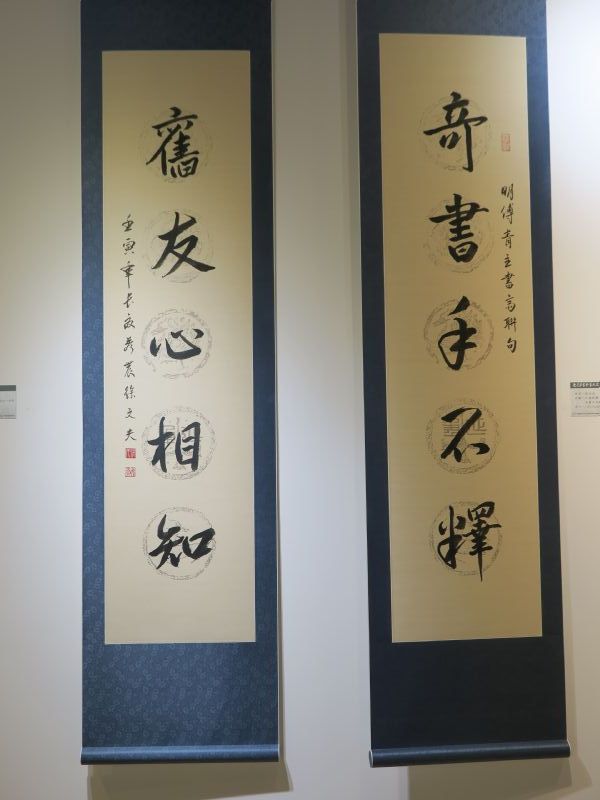 奇書手不釋
明傅青主書聯句
舊友心相知
壬寅年長夏徐文夫